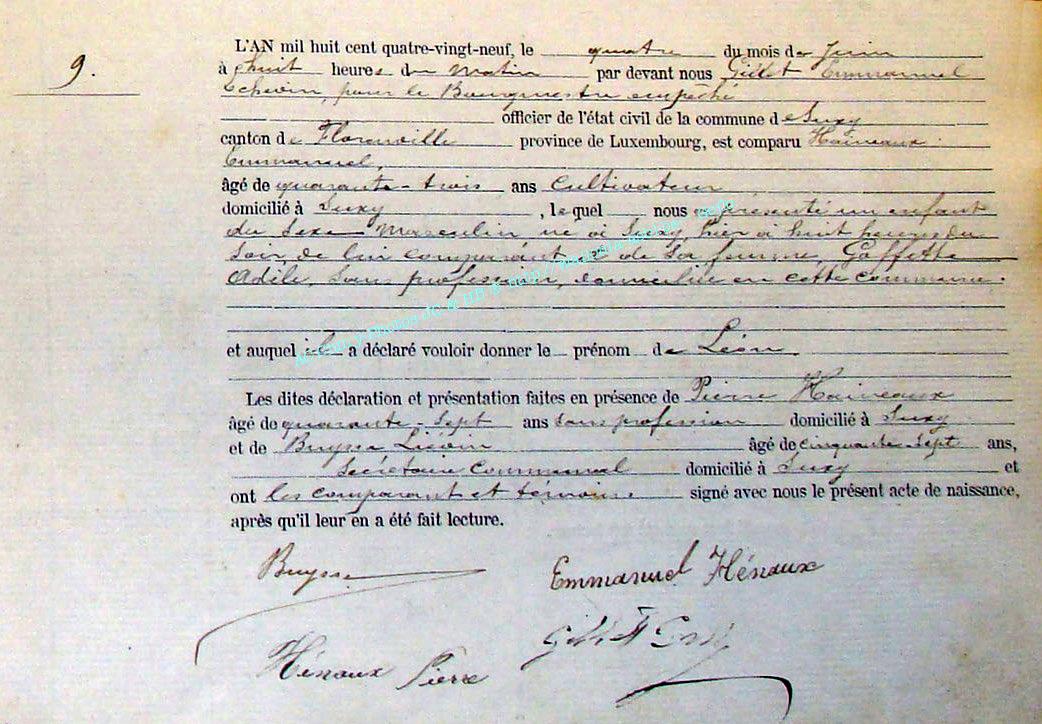 9.
L'AN mil huit cent quatre-vingt-neuf, le quatre du mois de Juin
à huit heures du matin par devant nous Gillet Emmanuel
Echevin, pour le Bourgmestre empêché
officier de l'état civil de la commune de Suxy
canton de Florenville province de Luxembourg, est comparu Haineaux
Emmanuel,
âgé de quarante-trois ans Cultivateur
domicilié à Suxy, lequel nous a présenté un enfant
du Sexe masculin né à Suxy, hier à huit heures du
soir, de lui comparant et de sa femme, Goffette
Adèle, sans profession, domiciliée en cette commune.
et auquel il a déclaré vouloir donner le prénom de Léon
Les dites déclaration et présentation faites en présence de Pierre Haineaux
âgé de quarante-Sept ans sans profession domicilié à Suxy
et de Buysse Liévin âgé de cinquante-Sept ans,
Secrétaire Communal domicilié à Suxy et
ont les comparant et témoins signé avec nous le présent acte de naissance,
après qu'il leur en a été fait lecture.
Buysse
Emmanuel Hénaux
Gillet Em
Hénaux Pierre